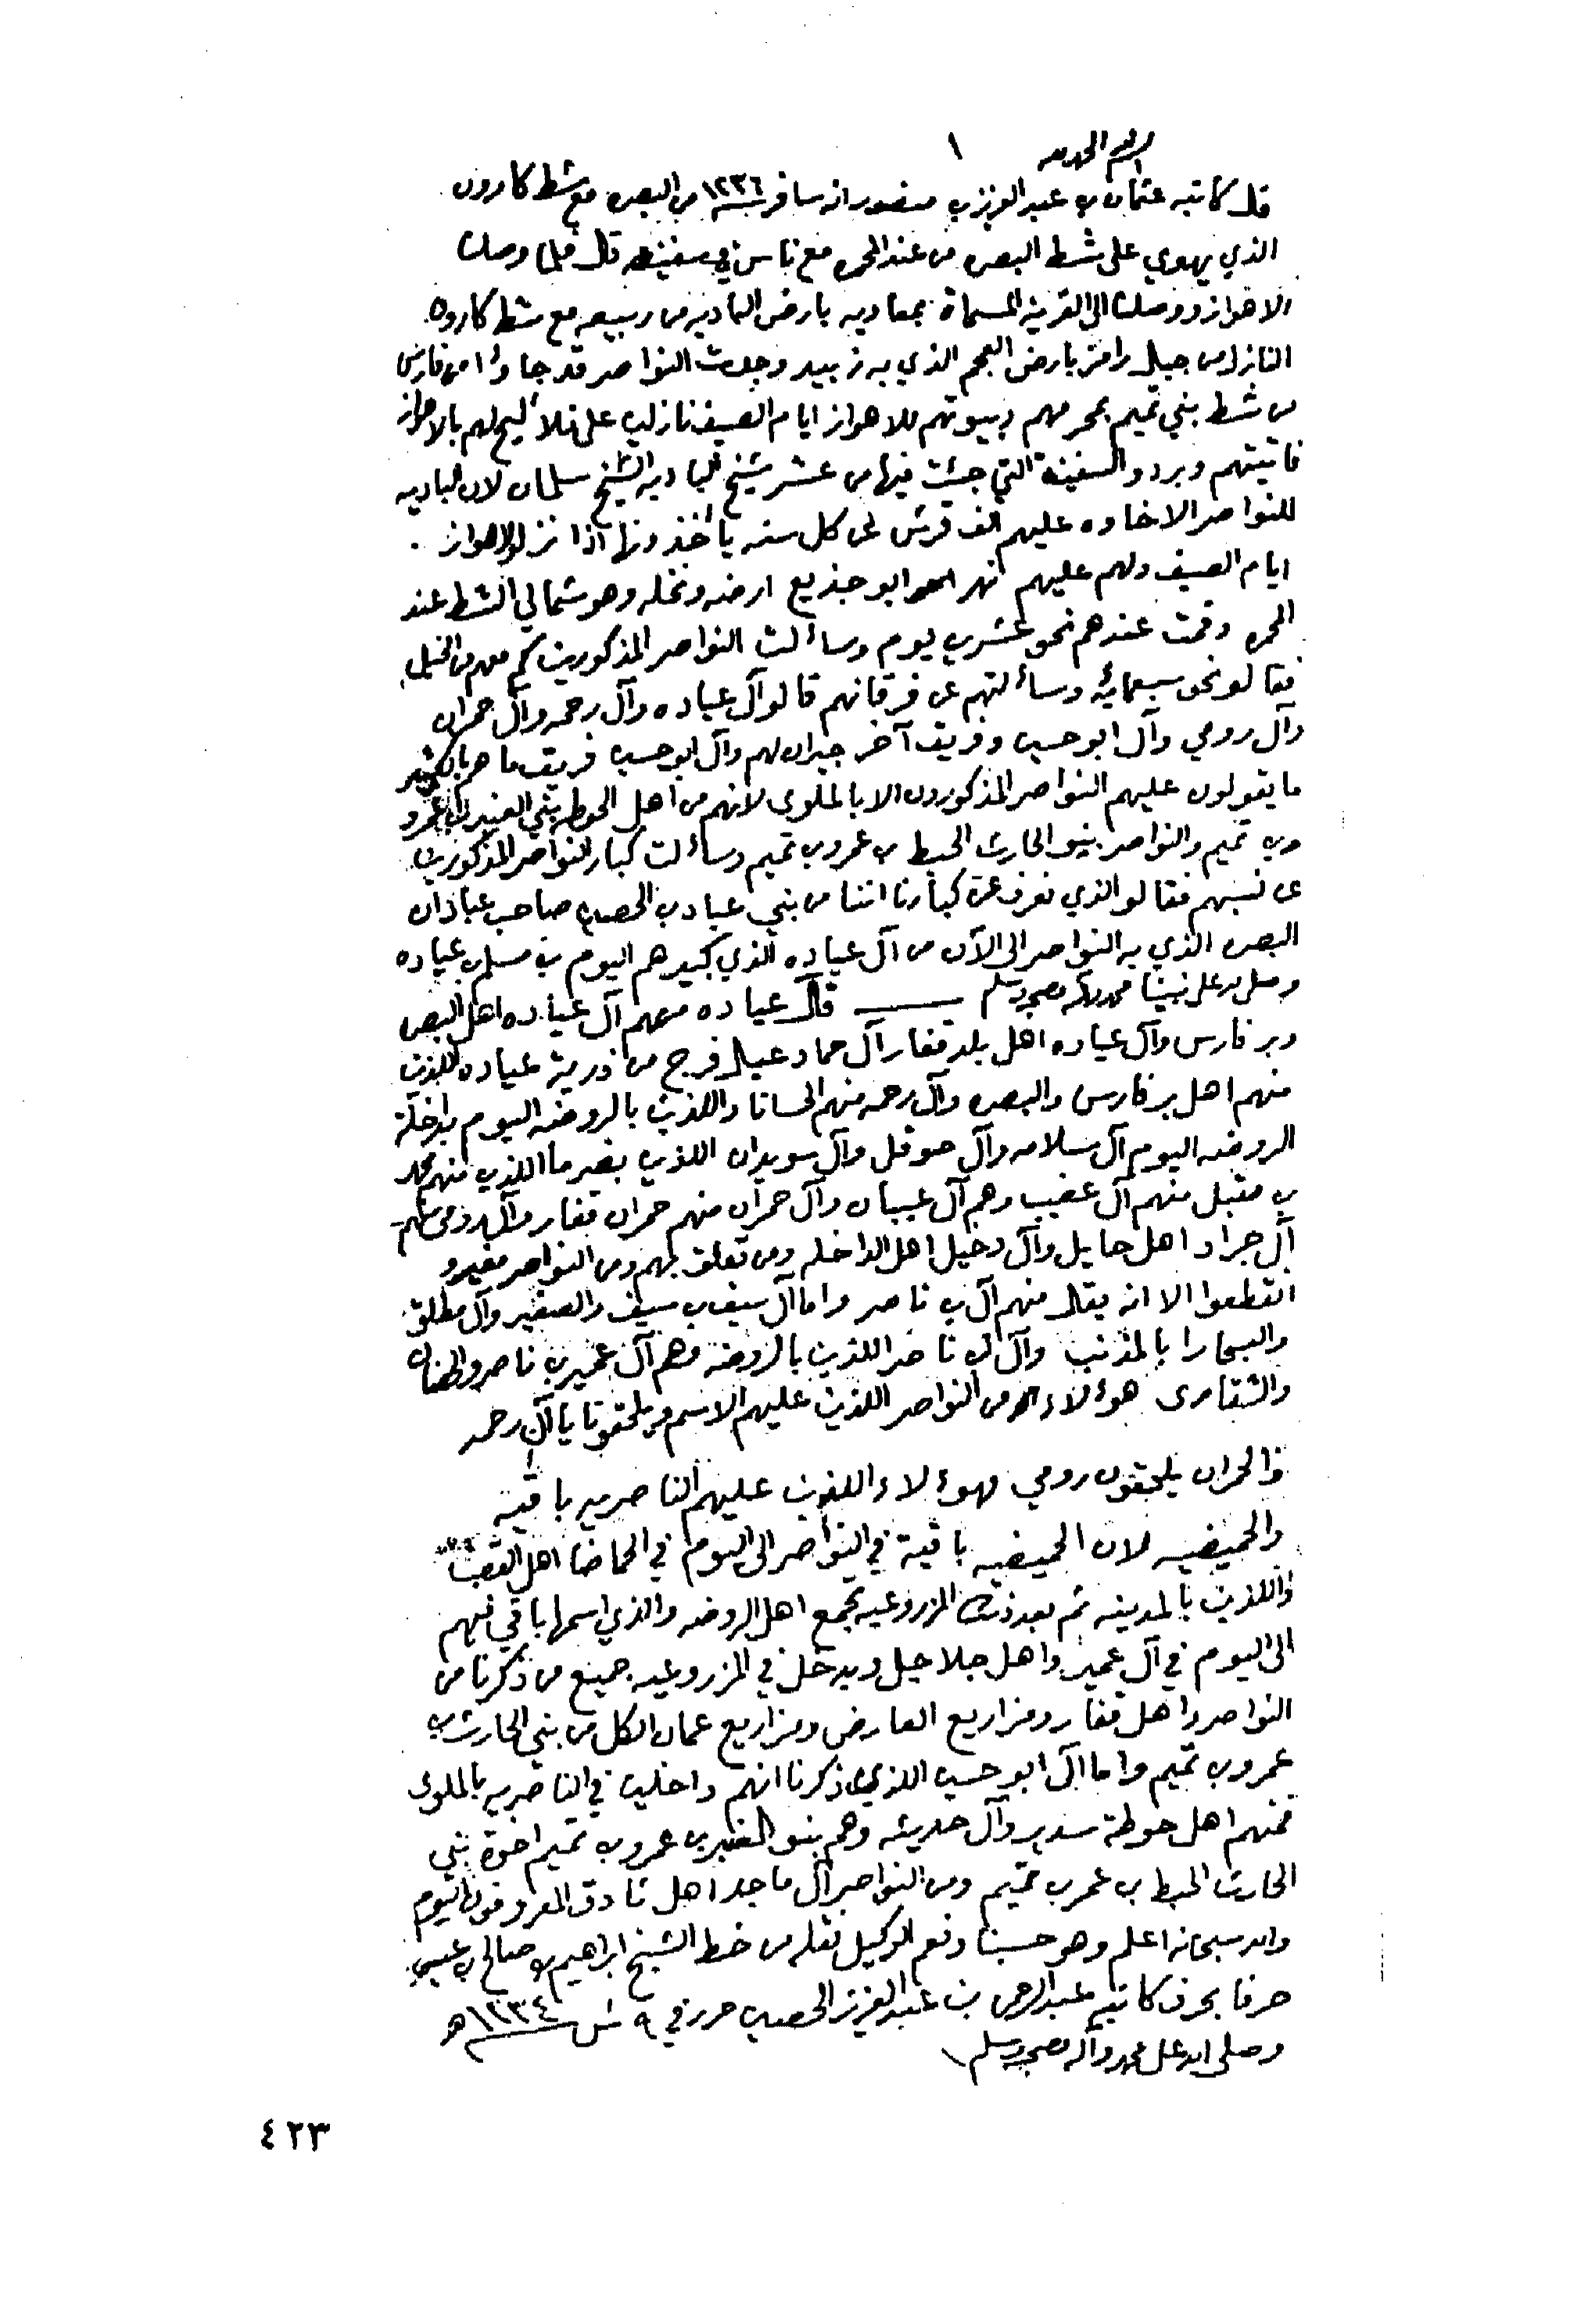 الحمد لله
١
قال كاتبه عثمان بن عبد العزيز بن منصور انه سافر سنة ١٢٣٦ من البصره مع شط كارون
الذي يهوي على شط البصره من عند المحمره مع ناس في سفينه قال فلما وصلنا
الاهواز ووصلنا الى القرية المسماة بمعاديه بارض الباديه من ربيعه مع شط كارون
النازل من جبل رامز بارض العجم الذي به زبيد وجدت النواصر قد جاوا من فارس
من شط بني تميم بمحرمهم وبيوتهم للاهواز ايام الصيف نازلين على بالاهواز
فاتيتهم السفينة التي جئت فيها من عشر شيخ الباديه الشيخ سلمان لان الباديه
للنواصر الاخاوه عليهم الف قرش في كل سنه يأخذونها اذا نزلو الاهواز
ايام الصيف ولهم عليهم نهر ابو جذيع ارضه ونخله وهو شمالي الشط عند
المحمره وقمت عندهم نحو عشرين يوم وسألت النواصر المذكورين كم معهم من الخيل
فقالو نحو سبعمائة وسألتهم عن فرقانهم قالو آل عياده وآل رحمه وآل حمران
وآل رومي وآل ابو حسين وفريق آخر جيران لهم وآل ابو حسين فريق ما هم بالكثير
ما يقولون عليهم النواصر المذكورون الا بالملوى لانهم من اهل الحوطه بني العنبر بن عمرو
بن تميم والنواصر بنو الحارث الحبط بن عمرو بن تميم وسألت كبار النواصر المذكورين
عن نسبهم فقالو الذي نعرف عن كبارنا اننا من بني عباد بن الحصين صاحب عبادان
البصره الذي به النواصر الى الآن من آل عياده الذي كبيرهم اليوم بن مسلم بن عياده
وصلى الله على نبينا محمد وآله وصحبه وسلم قال عياده منهم آل عياده اهل البصره
وبر فارس وآل عياده اهل بلد قفار آل حماد عيال فرج من ذرية عياده اللذين
منهم اهل بر فارس والبصره وآل رحمه منهم الحسانا واللذين بالروضه اليوم بداخلة
الروضه اليوم آل سلامه وآل حوقل وآل سويدان اللذين بضرما اللذين منهم محمد
بن مقبل منهم آل عضيب وهم آل عيبان وآل حمران منهم حمران قفار وآل رومي منهم
آل جراد اهل حايل وآل دخيل اهل الداخله ومن تعلق بهم ومن النواصر مفيد و
انقطعوا الا انه يقال منهم آل بن ناصر واما آل سيف بن سيف والصغير وآل مطلق
والبحارا بالمذنب وآل بن ناصر اللذين بالروضه وهم آل عمير بن ناصر والطنان
والشقارى هؤلاء من النواصر اللذين عليهم الاسم ويلحقونا يا آل رحمه
والحمران يلحقون رومي فهؤلاء اللذين عليهم الناصريه باقيه
والحميضيه لان الحميضيه باقية في النواصر الى اليوم في الحماضا اهل القصب
واللذين بالمدينه ثم بعد ذلك المزروعيه تجمع اهل الروضه والذي اسمها باقي لهم
الى اليوم في آل عمير واهل جلاجل ويدخل في المزروعيه جميع من ذكرنا من
النواصر واهل قفار ومزاريع العارض ومزاريع عمان الكل من بني الحارث بن
عمرو بن تميم واما آل ابو حسين اللذين ذكرنا انهم داخلين في الناصريه بالملوى
فمنهم اهل حوطة سدير وآل حديثه وهم بنو العنبر بن عمرو بن تميم اخوة بني
الحارث الحبط بن عمر بن تميم ومن النواصر آل ماجد اهل ثادق المعروفون اليوم
والله سبحانه اعلم وهو حسبنا ونعم الوكيل نقله من خط الشيخ ابراهيم بن صالح بن عيسى
حرفا بحرف كاتبه عبد الرحمن بن عبد العزيز الحصين حرر في ٩ ش سنة ١٣٣٤ هـ
وصلى الله على محمد وآله وصحبه وسلم
٤٢٣